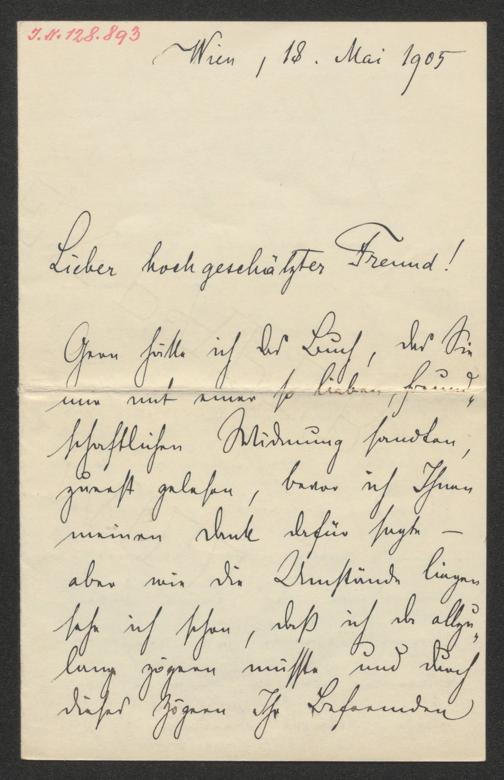 J.N. 128.893
Wien, 18. Mai 1905
Lieber hochgeschätzter Freund!
Gern hätte ich das Buch, das Sie
mir mit einer so lieben, freund„
schaftlichen Widmung sandten,
zuerst gelesen, bevor ich Ihnen
meinen Dank dafür sagte –
aber wie die Umstände liegen
sehe ich schon, daß ich da allzu„
lang zögern müsste und durch
dieses Zögern Ihr Befremden